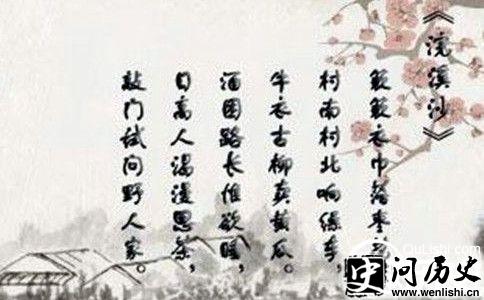 《浣溪沙》
簌簌衣巾落枣
村南村北响缲车，
牛衣古柳卖黄瓜。
酒困路长惟欲睡，
日高人渴漫思茶，
敲门试问野人家。
QuLishi.com
史问历史
www.wenlishi.cn